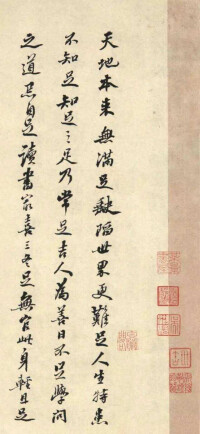 天地本來無滿足缺陷世界更難足人生特患
不知足知足之足乃常足吉人為善日不足學問
之道忌自足讀書最喜三冬足無官此身輕且足